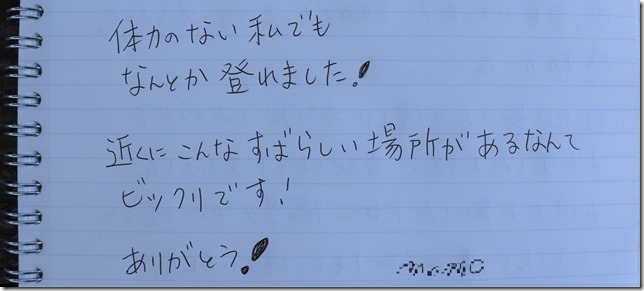 体力のない私でも
なんとか登れました!
近くにこんなすばらしい場所があるなんて
ビックリです!
ありがとう!